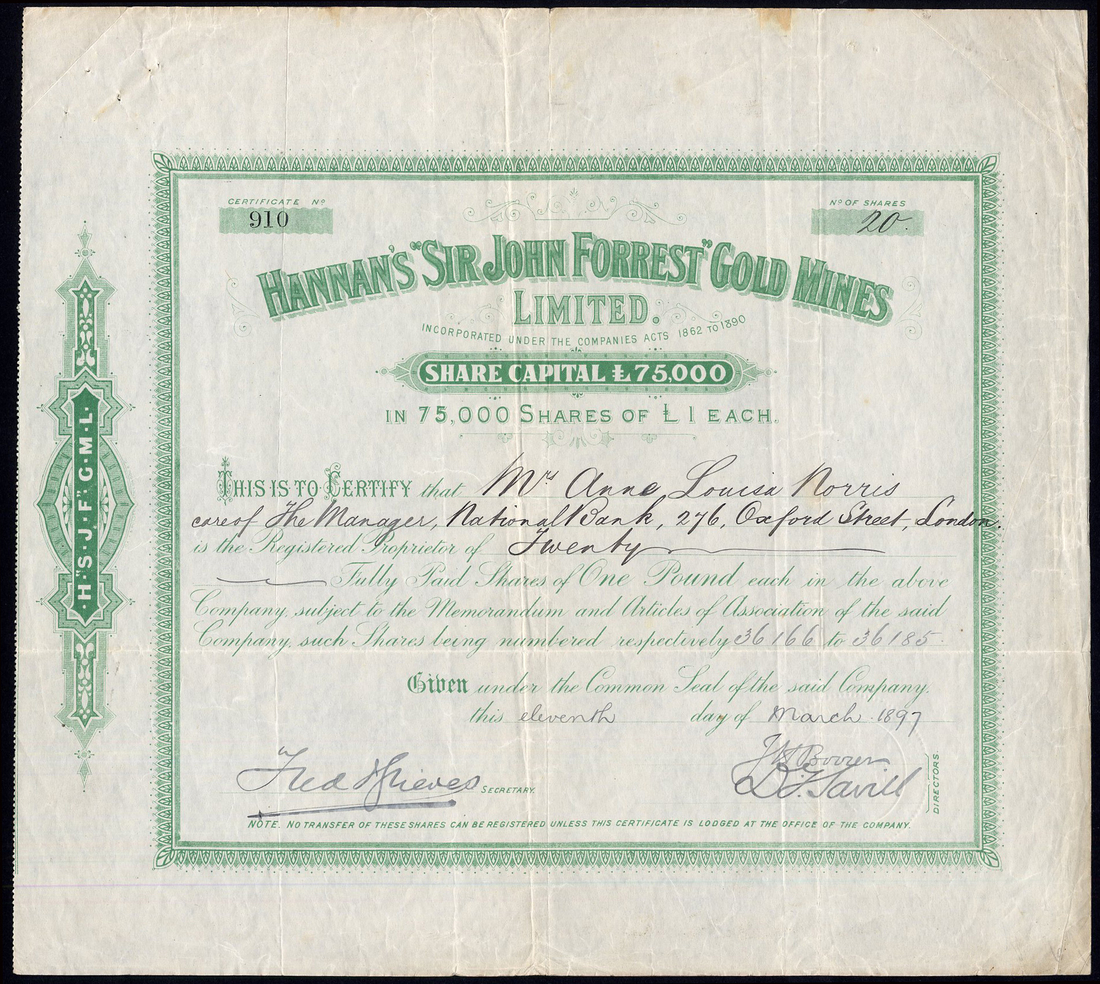 CERTIFICATE Nº
910
Nº OF SHARES
20
HANNAN'S "SIR JOHN FORREST" GOLD MINES
LIMITED.
INCORPORATED UNDER THE COMPANIES ACTS 1862 TO 1890
SHARE CAPITAL £75,000
IN 75,000 SHARES OF £1 EACH.
H·"S·J·F"G·M·L·
THIS IS TO CERTIFY that Mrs Anne Louisa Norris
care of The Manager, National Bank, 276, Oxford Street, London.
is the Registered Proprietor of Twenty
Fully Paid Shares of One Pound each in the above
Company, subject to the Memorandum and Articles of Association of the said
Company, such Shares being numbered respectively 36166 to 36185.
Given under the Common Seal of the said Company.
this eleventh day of March 1897
Fred
SECRETARY.
D. F. Savill
DIRECTORS
NOTE. NO TRANSFER OF THESE SHARES CAN BE REGISTERED UNLESS THIS CERTIFICATE IS LODGED AT THE OFFICE OF THE COMPANY.